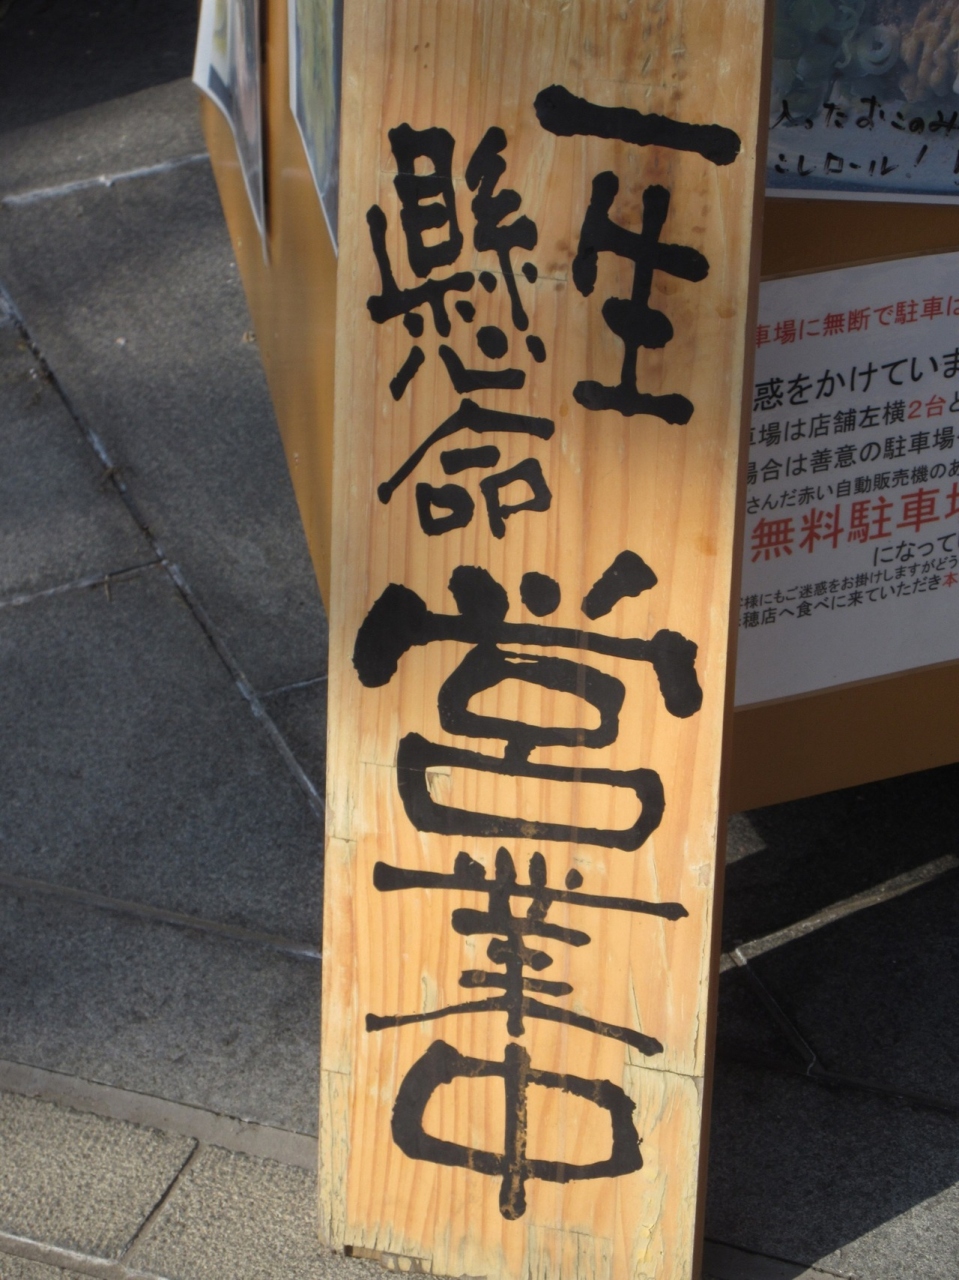 一生
懸命
営業中
入ったおこのみ
こしロール!
車場に無断で駐車は
惑をかけていま
場は店舗左横2台と
場合は善意の駐車場
さんだ赤い自動販売機のあ
無料駐車場
になってい
様にもご迷惑をお掛けしますがどう
穂店へ食べに来ていただき本